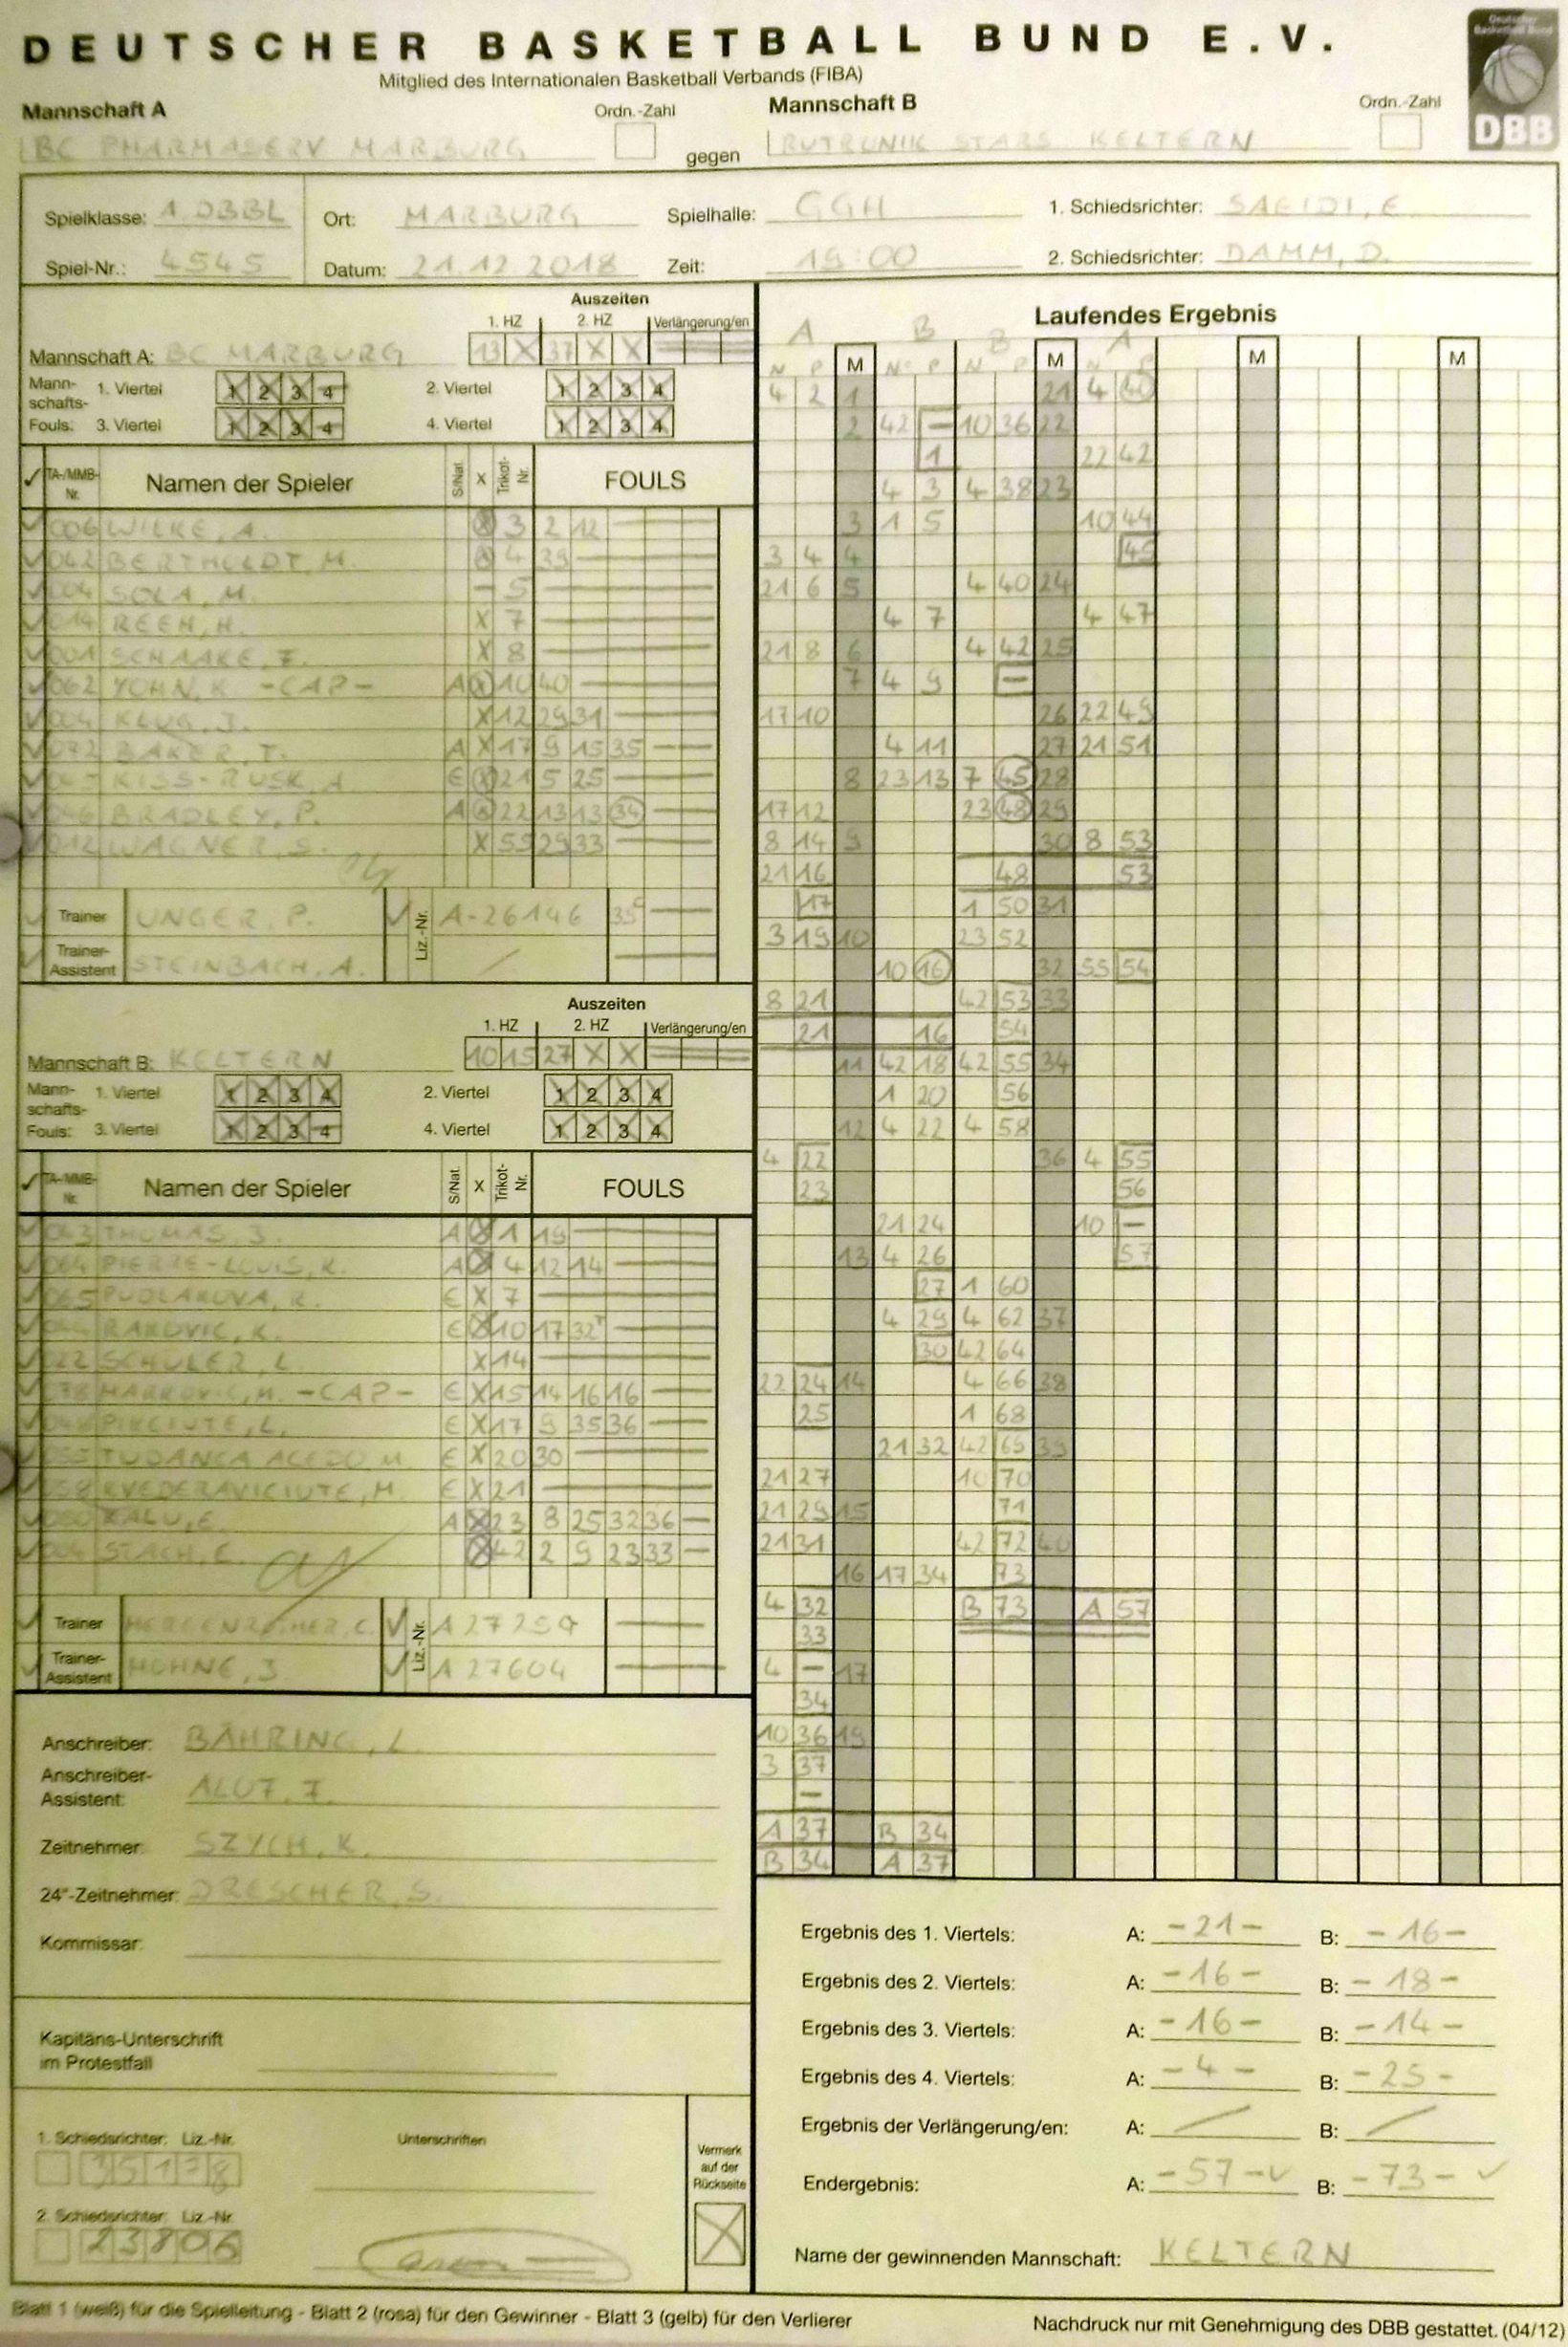 DEUTSCHER BASKETBALL BUND E.V.
Mitglied des Internationalen Basketball Verbands (FIBA)
Deutscher Basketball Bund
DBB
Mannschaft A
Ordn.-Zahl
BC PHARMASERV MARBURG
gegen
Mannschaft B
Ordn.-Zahl
RUTRONIK STARS KELTERN
Spielklasse: 1. DBBL
Ort: MARBURG
Spielhalle: GGH
1. Schiedsrichter: SAEIDI, E
Spiel-Nr.: 4545
Datum: 21.12 2018
Zeit: 19:00
2. Schiedsrichter: DAMM, D.
Auszeiten
1. HZ 2. HZ Verlängerung/en
Mannschaft A: BC MARBURG 13 X 37 X X
Mannschafts-Fouls: 1. Viertel 1 2 3 4 2. Viertel 1 2 3 4
3. Viertel 1 2 3 4 4. Viertel 1 2 3 4
✓ TA-/MMB-Nr. Namen der Spieler S/Nat. X Trikot-Nr. FOULS
✓ 006 WILKE, A. X 3 2 12
✓ 042 BERTHOLDT, M. 4 39
✓ 004 SOLA, M. – 5
✓ 014 REEH, H. X 7
✓ 001 SCHAAKE, F. X 8
✓ 062 YOHN, K -CAP- A X 10 40
✓ 004 KLUG, J. X 12 29 31
✓ 072 BAKER, T. A X 17 9 15 35
✓ KISS-RUSK, A E X 21 5 25
✓ 046 BRADLEY, P. A X 22 13 13 34
✓ 012 WAGNER, S. X 55 29 33
✓ Trainer UNGER, P. ✓ Liz.-Nr. A-26146 35 C
✓ Trainer-Assistent STEINBACH, A. /
Auszeiten
1. HZ 2. HZ Verlängerung/en
Mannschaft B: KELTERN 10 15 27 X X
Mannschafts-Fouls: 1. Viertel 1 2 3 4 2. Viertel 1 2 3 4
3. Viertel 1 2 3 4 4. Viertel 1 2 3 4
✓ TA-/MMB-Nr. Namen der Spieler S/Nat. X Trikot-Nr. FOULS
✓ 043 THOMAS, J. A X 1 19
✓ 064 PIERRE-LOUIS, K. A X 4 12 14
✓ 065 PUDLAKOVA, R. E X 7
✓ 044 RAKOVIC, K. E X 10 17 32 T
✓ 022 SCHÜLER, L. X 14
✓ 078 MARKOVIC, M. -CAP- E X 15 14 16 16
✓ PIKCIUTE, L. E X 17 9 35 36
✓ 055 TUDANCA ACEDO M. E X 20 30
✓ 058 KVEDERAVICIUTE, M. E X 21
✓ KALU, E. A X 23 8 25 32 36
✓ 004 STACH, E. X 42 2 9 23 33
✓ Trainer HERGENRÖTHER, C. ✓ Liz.-Nr. A 27259
✓ Trainer-Assistent HOHNE, J. ✓ A 27604
Anschreiber: BÄHRING, L
Anschreiber-Assistent: ALUF, F.
Zeitnehmer: SZYCH, K.
24"-Zeitnehmer: DRESCHER, S.
Kommissar:
Kapitäns-Unterschrift
im Protestfall
1. Schiedsrichter: Liz.-Nr. 35178
Unterschriften
Vermerk auf der Rückseite X
2. Schiedsrichter: Liz.-Nr. 23806
Laufendes Ergebnis
A B B A
N P M N P N P M N P M M
4 2 1 21 4 40
2 42 – 10 36 22
1 22 42
4 3 4 38 23
3 1 5 10 44
3 4 4 45
21 6 5 4 40 24
4 7 4 47
21 8 6 4 42 25
7 4 9 –
17 10 26 22 49
4 11 27 21 51
8 23 13 7 45 28
17 12 23 48 29
8 14 9 30 8 53
21 16 48 53
17 1 50 31
3 19 10 23 52
10 16 32 55 54
8 21 42 53 33
21 16 54
11 42 18 42 55 34
1 20 56
12 4 22 4 58
4 22 36 4 55
23 56
21 24 10 –
13 4 26 57
27 1 60
4 29 4 62 37
30 42 64
22 24 14 4 66 38
25 1 68
21 32 42 69 39
21 27 10 70
21 29 15 71
21 31 42 72 40
16 17 34 73
4 32 B 73 A 57
33
4 – 17
34
10 36 19
3 37
–
A 37 B 34
B 34 A 37
Ergebnis des 1. Viertels: A: -21- B: -16-
Ergebnis des 2. Viertels: A: -16- B: -18-
Ergebnis des 3. Viertels: A: -16- B: -14-
Ergebnis des 4. Viertels: A: -4- B: -25-
Ergebnis der Verlängerung/en: A: / B: /
Endergebnis: A: -57- ✓ B: -73- ✓
Name der gewinnenden Mannschaft: KELTERN
Blatt 1 (weiß) für die Spielleitung - Blatt 2 (rosa) für den Gewinner - Blatt 3 (gelb) für den Verlierer
Nachdruck nur mit Genehmigung des DBB gestattet. (04/12)